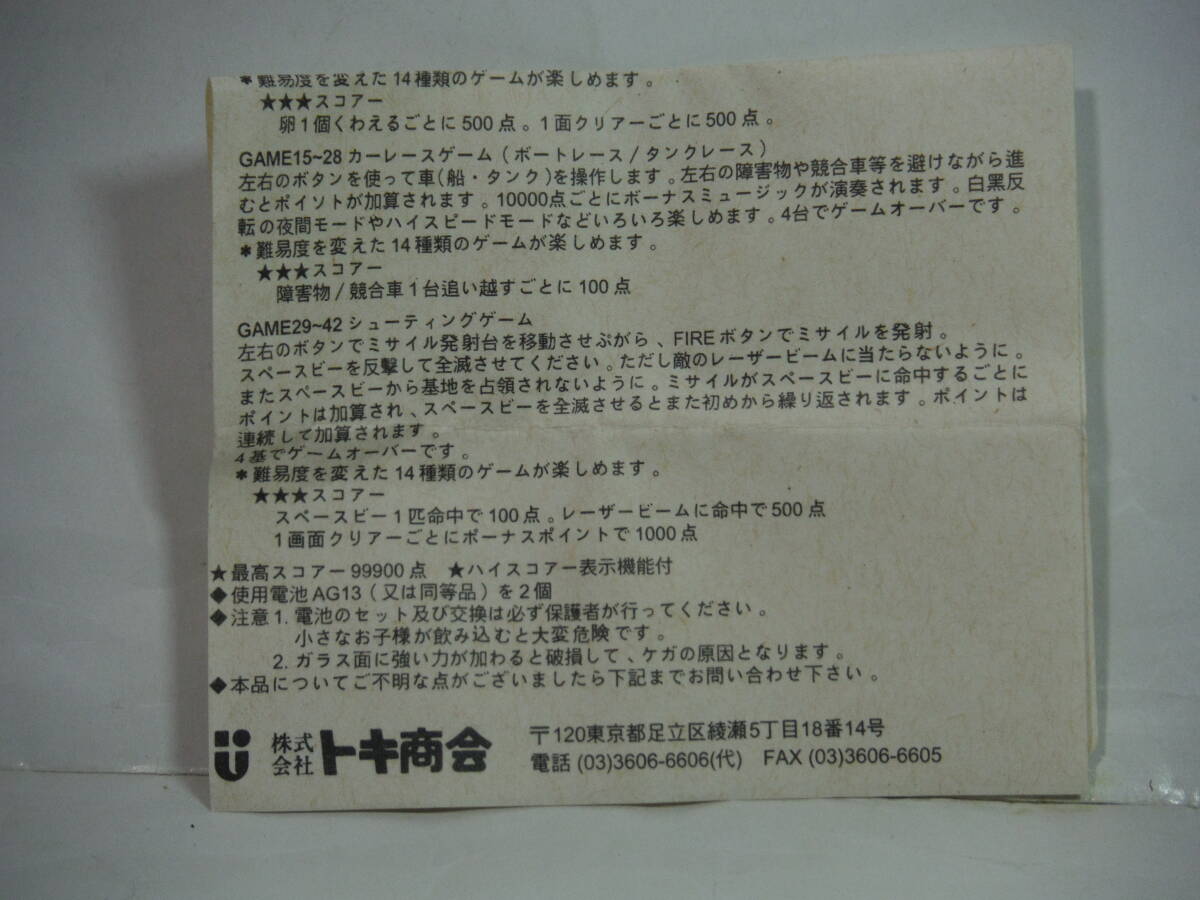 *難易度を変えた14種類のゲームが楽しめます。
★★★スコアー
卵1個くわえるごとに500点。1面クリアーごとに500点。
GAME15~28 カーレースゲーム(ボートレース/タンクレース)
左右のボタンを使って車(船・タンク)を操作します。左右の障害物や競合車等を避けながら進
むとポイソトが加算されます。10000点ごとにボーナスミュージックが演奏されます。白黒反
転の夜間モードやハイスピードモードなどいろいろ楽しめます。4台でゲームオーバーです。
*難易度を変えた14種類のゲームが楽しめます。
★★★スコアー
障害物/競合車1台追い越すごとに100点
GAME29~42 シューティングゲーム
左右のボタンでミサイル発射台を移動させぷがら、FIREボタンでミサイルを発射。
スペースビーを反撃して全滅させてください。ただし敵のレーザービームに当たらないように。
またスペースビーから基地を占領されないように。ミサイルがスペースビーに命中するごとに
ポイントは加算され、スペースビーを全滅させるとまた初めから繰り返されます。ポイントは
連続して加算されます。
4基でゲームオーバーです。
*難易度を変えた14種類のゲームが楽しめます。
★★★スコアー
スペースビー1匹命中で100点。レーザービームに命中で500点
1画面クリアーごとにボーナスポイントで1000点
★最高スコアー99900点 ★ハイスコアー表示機能付
◆使用電池AG13(又は同等品)を2個
◆注意1. 電池のセット及び交換は必ず保護者が行ってください。
小さなお子様が飲み込むと大変危険です。
2. ガラス面に強い力が加わると破損して、ケガの原因となります。
◆本品についてご不明な点がございましたら下記までお問い合わせ下さい。
株式会社トキ商会
〒120東京都足立区綾瀬5丁目18番14号
電話(03)3606-6606(代) FAX(03)3606-6605